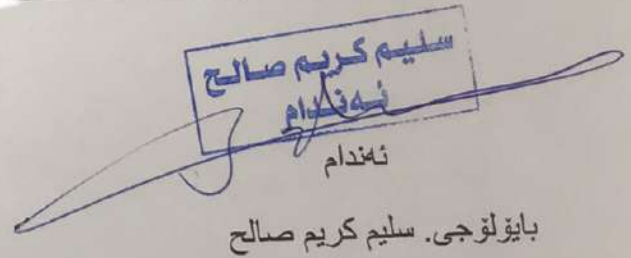 سليم كريم صالح
ئەندام
ئەندام
بایۆلۆجی. سلیم کریم صالح